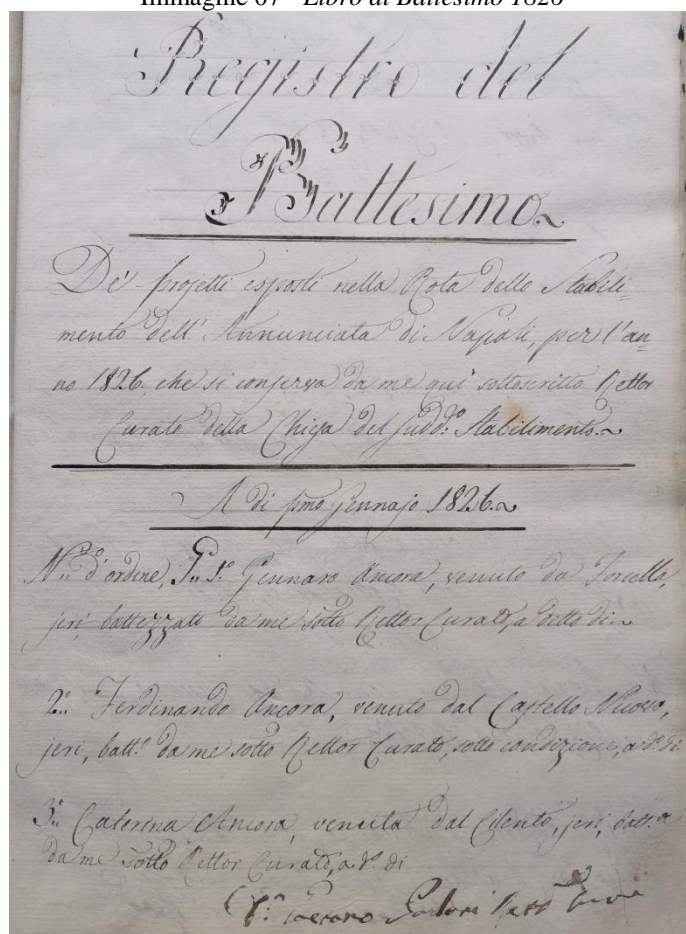 Immagine 67 - Libro di Battesimo 1826
Registro del
Battesimo
De' projetti esposti nella Rota dello Stabili-
mento dell' Annunciata di Napoli, per l'an-
no 1826, che si conserva da me quì sottoscritto Rettor
Curato della Chiesa del sudd.º Stabilimento.
A di pmo Gennajo 1826.
N.º d'ordine, 1.º Gennaro Ancora, venuto da Forcella,
jeri, battezzato da me sotto Rettor Curato, a detto di
2.º Ferdinando Ancora, venuto dal Castello Nuovo,
jeri, batt.º da me sotto Rettor Curato, sotto condizione, a d.º di
3.º Caterina Ancora, venuta dal Cilento, jeri, batt.a
da me sotto Rettor Curato, a d.º di
Gaetano